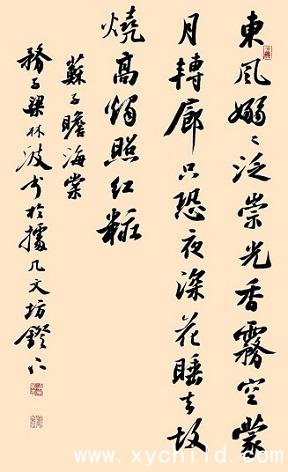 東風嫋々泛崇光香霧空蒙
月轉廊只恐夜深花睡去故
燒高燭照紅粧
蘇子瞻海棠
務子梁林波书於據几文坊鐙下
www.xychild.com